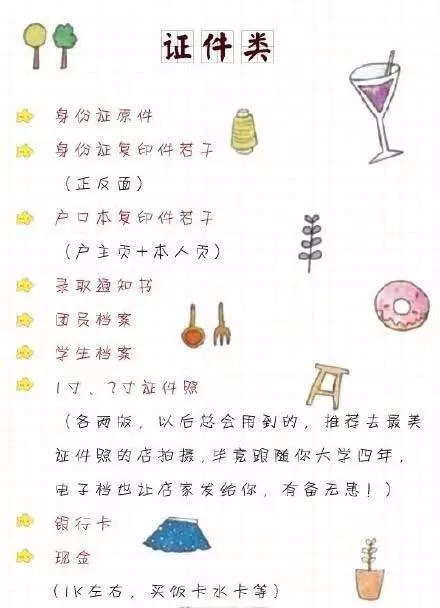 证件类
身份证原件
身份证复印件若干
（正反面）
户口本复印件若干
（户主页+本人页）
录取通知书
团员档案
学生档案
1寸、2寸证件照
（各两版，以后总会用到的，推荐去最美
证件照的店拍摄，毕竟跟随你大学四年，
电子档也让店家发给你，有备无患！）
银行卡
现金
（1K左右，买饭卡水卡等）